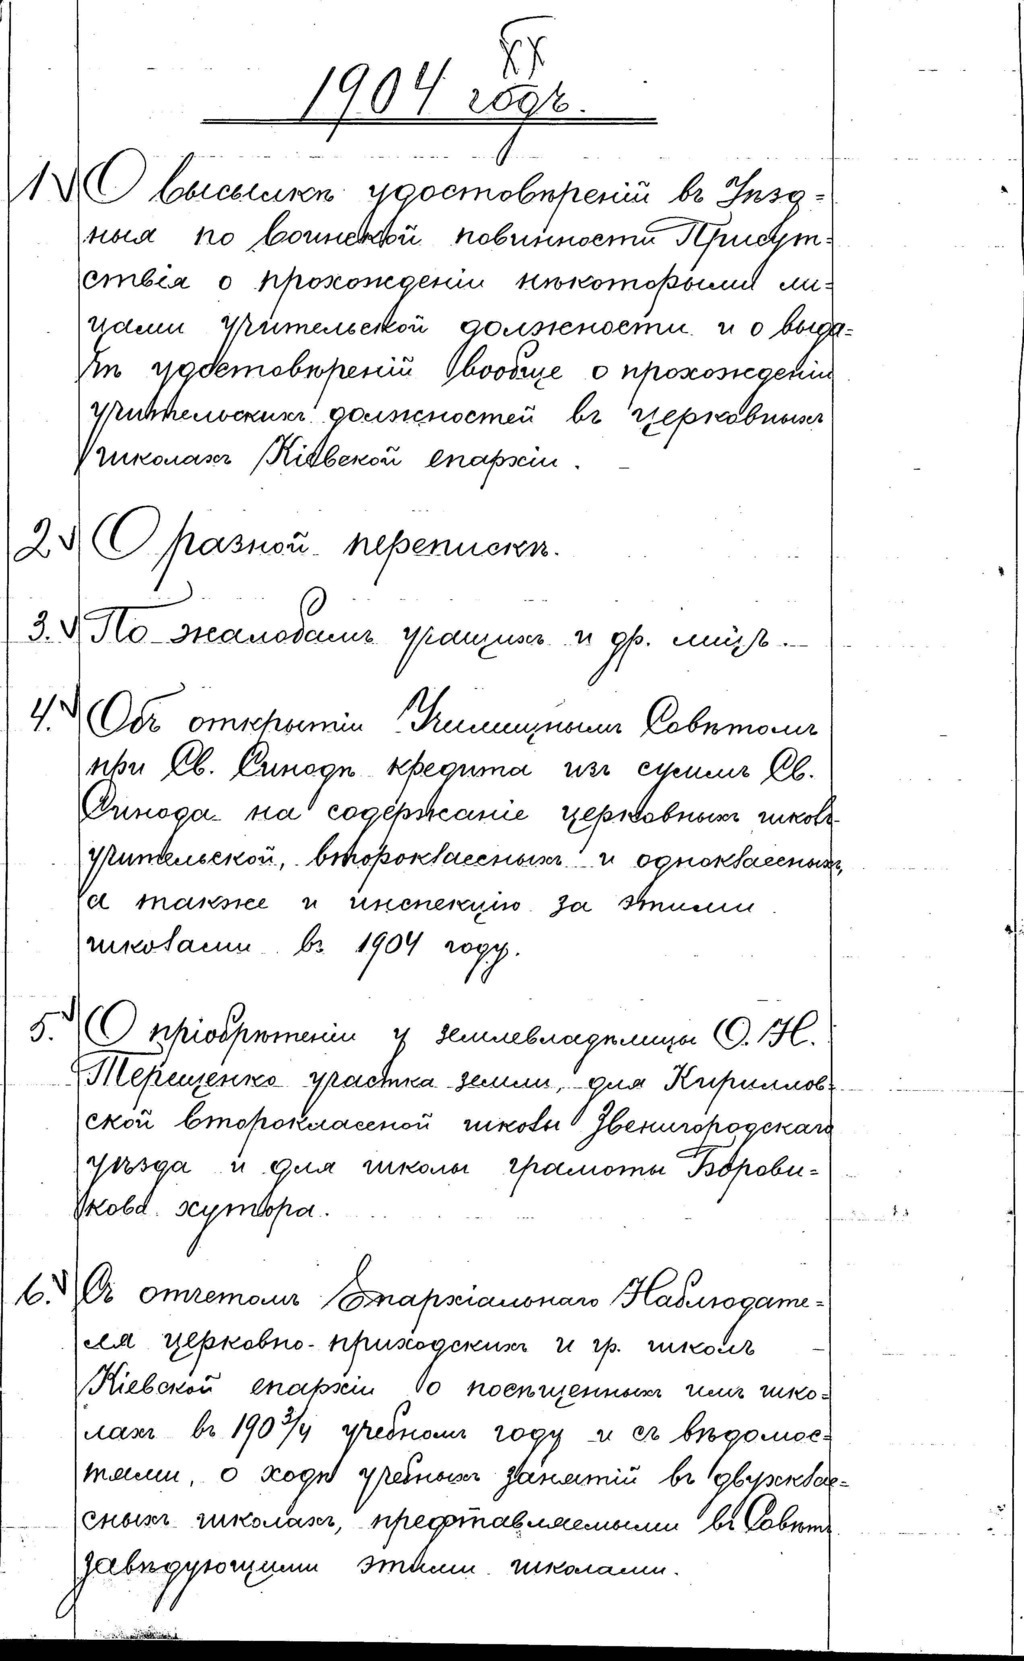 XX
1904 годъ.
1. О высылкѣ удостовѣреній въ Уѣзд=
ныя по воинской повинности Присут=
ствія о прохожденіи нѣкоторыми ли=
цами учительской должности и о выда=
чѣ удостовѣреній вообще о прохожденіи
учительскихъ должностей въ церковныхъ
школахъ Кіевской епархіи.
2. О разной перепискѣ.
3. По жалобамъ учащихъ и др. лицъ.
4. Объ открытіи Училищнымъ Совѣтомъ
при Св. Синодѣ кредита изъ суммъ Св.
Синода на содержаніе церковныхъ школъ
учительской, второклассныхъ и одноклассныхъ,
а также и инспекцію за этими
школами въ 1904 году.
5. О пріобрѣтеніи у землевладѣлицы О. Н.
Терещенко участка земли, для Кириллов=
ской второкласной школы Звенигородскаго
уѣзда и для школы грамоты Борови=
кова хутора.
6. Съ отчетомъ Епархіальнаго Наблюдате=
ля церковно-приходскихъ и гр. школъ
Кіевской епархіи о посѣщенныхъ имъ шко=
лахъ въ 190 3/4 учебномъ году и съ вѣдомос=
тями, о ходѣ учебныхъ занятій въ двухклас=
сныхъ школахъ, представляемыми въ Совѣтъ
завѣдующими этими школами.